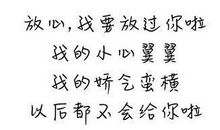 放心,我要放过你啦
我的小心翼翼
我的娇气蛮横
以后都不会给你啦